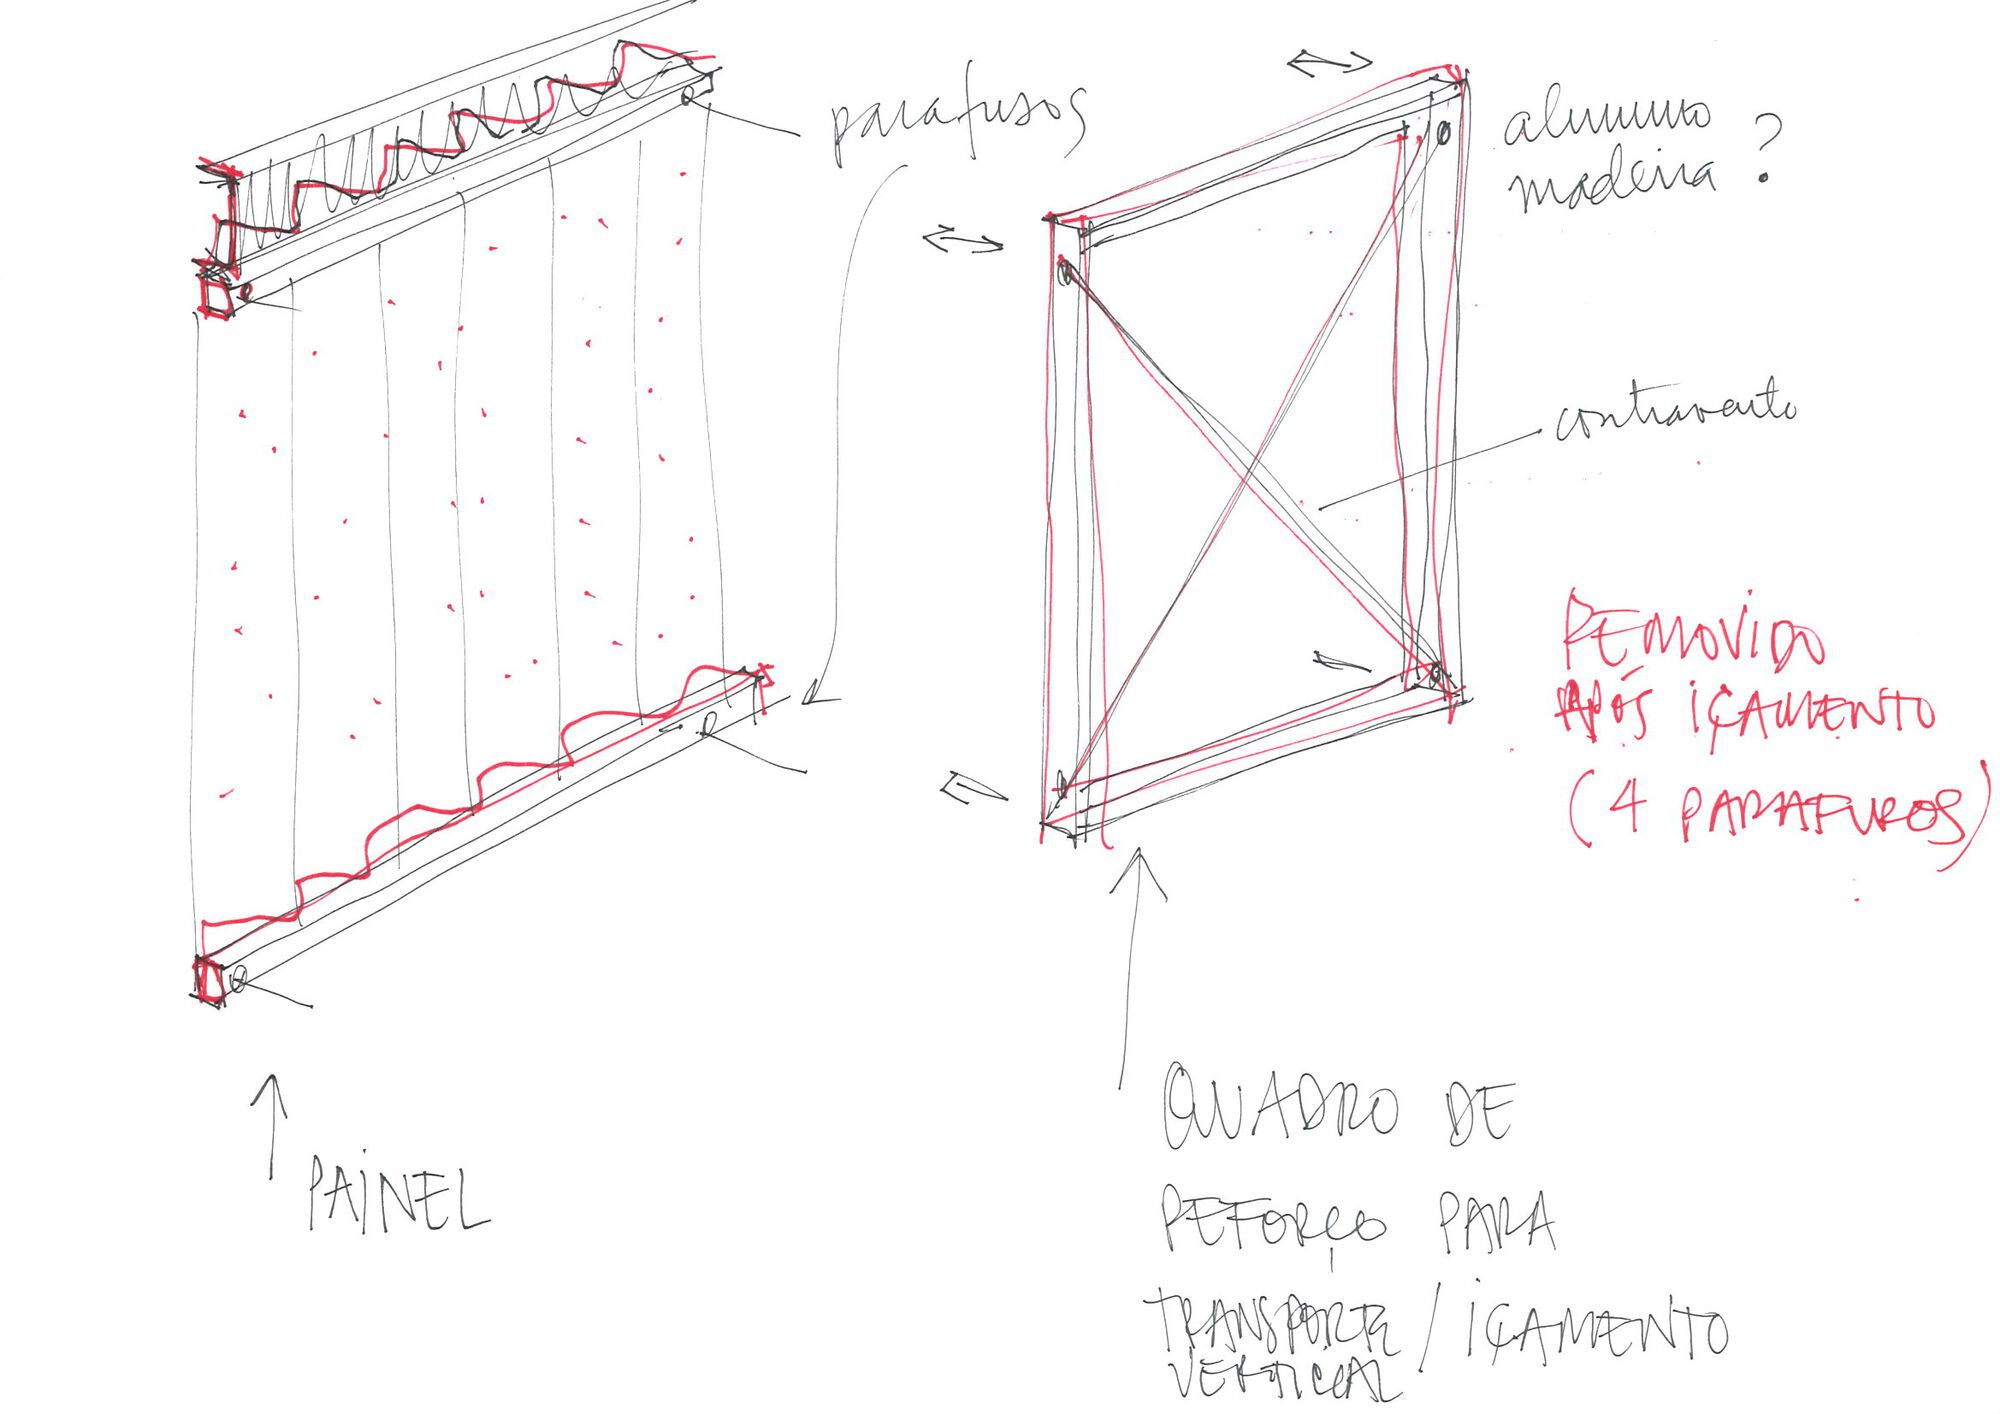 parafusos
alumino
madeira ?
contravento
REMOVIDO
APÓS IÇAMENTO
(4 PARAFUSOS)
PAINEL
QUADRO DE
REFORÇO PARA
TRANSPORTE / IÇAMENTO
VERTICAL